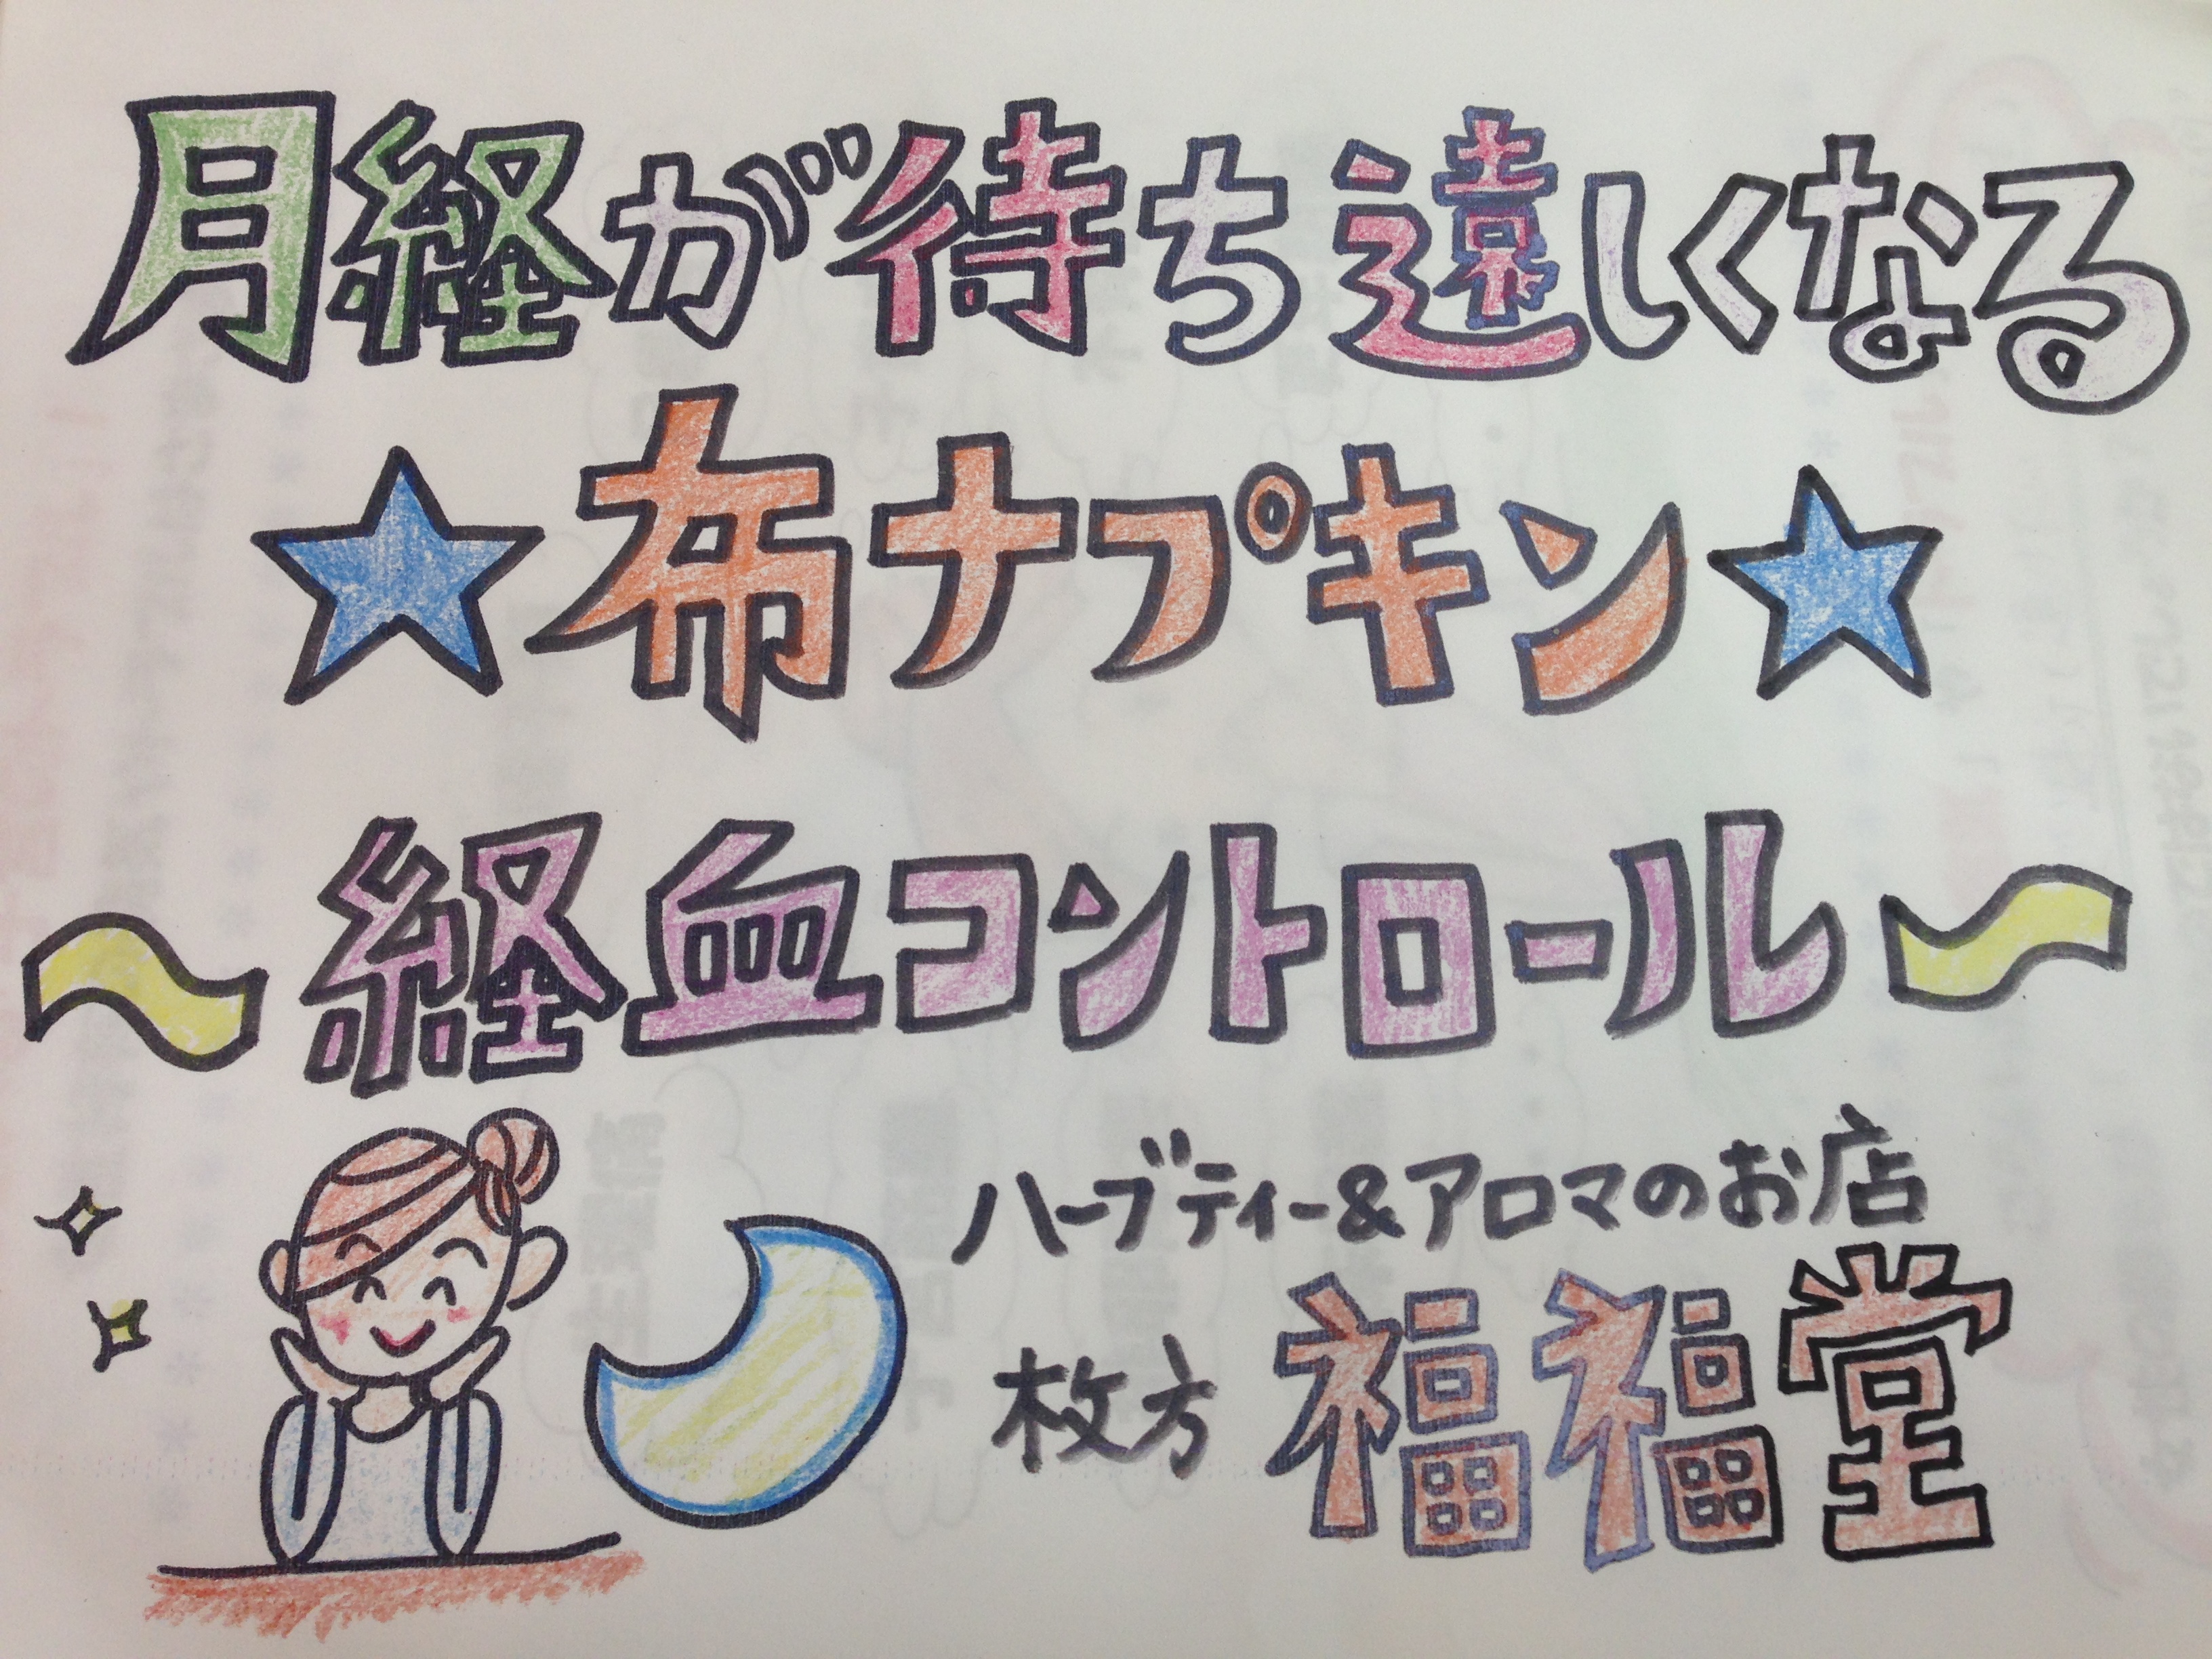 月経が待ち遠しくなる
★布ナプキン★
～経血コントロール～
ハーブティー&アロマのお店
枚方 福福堂